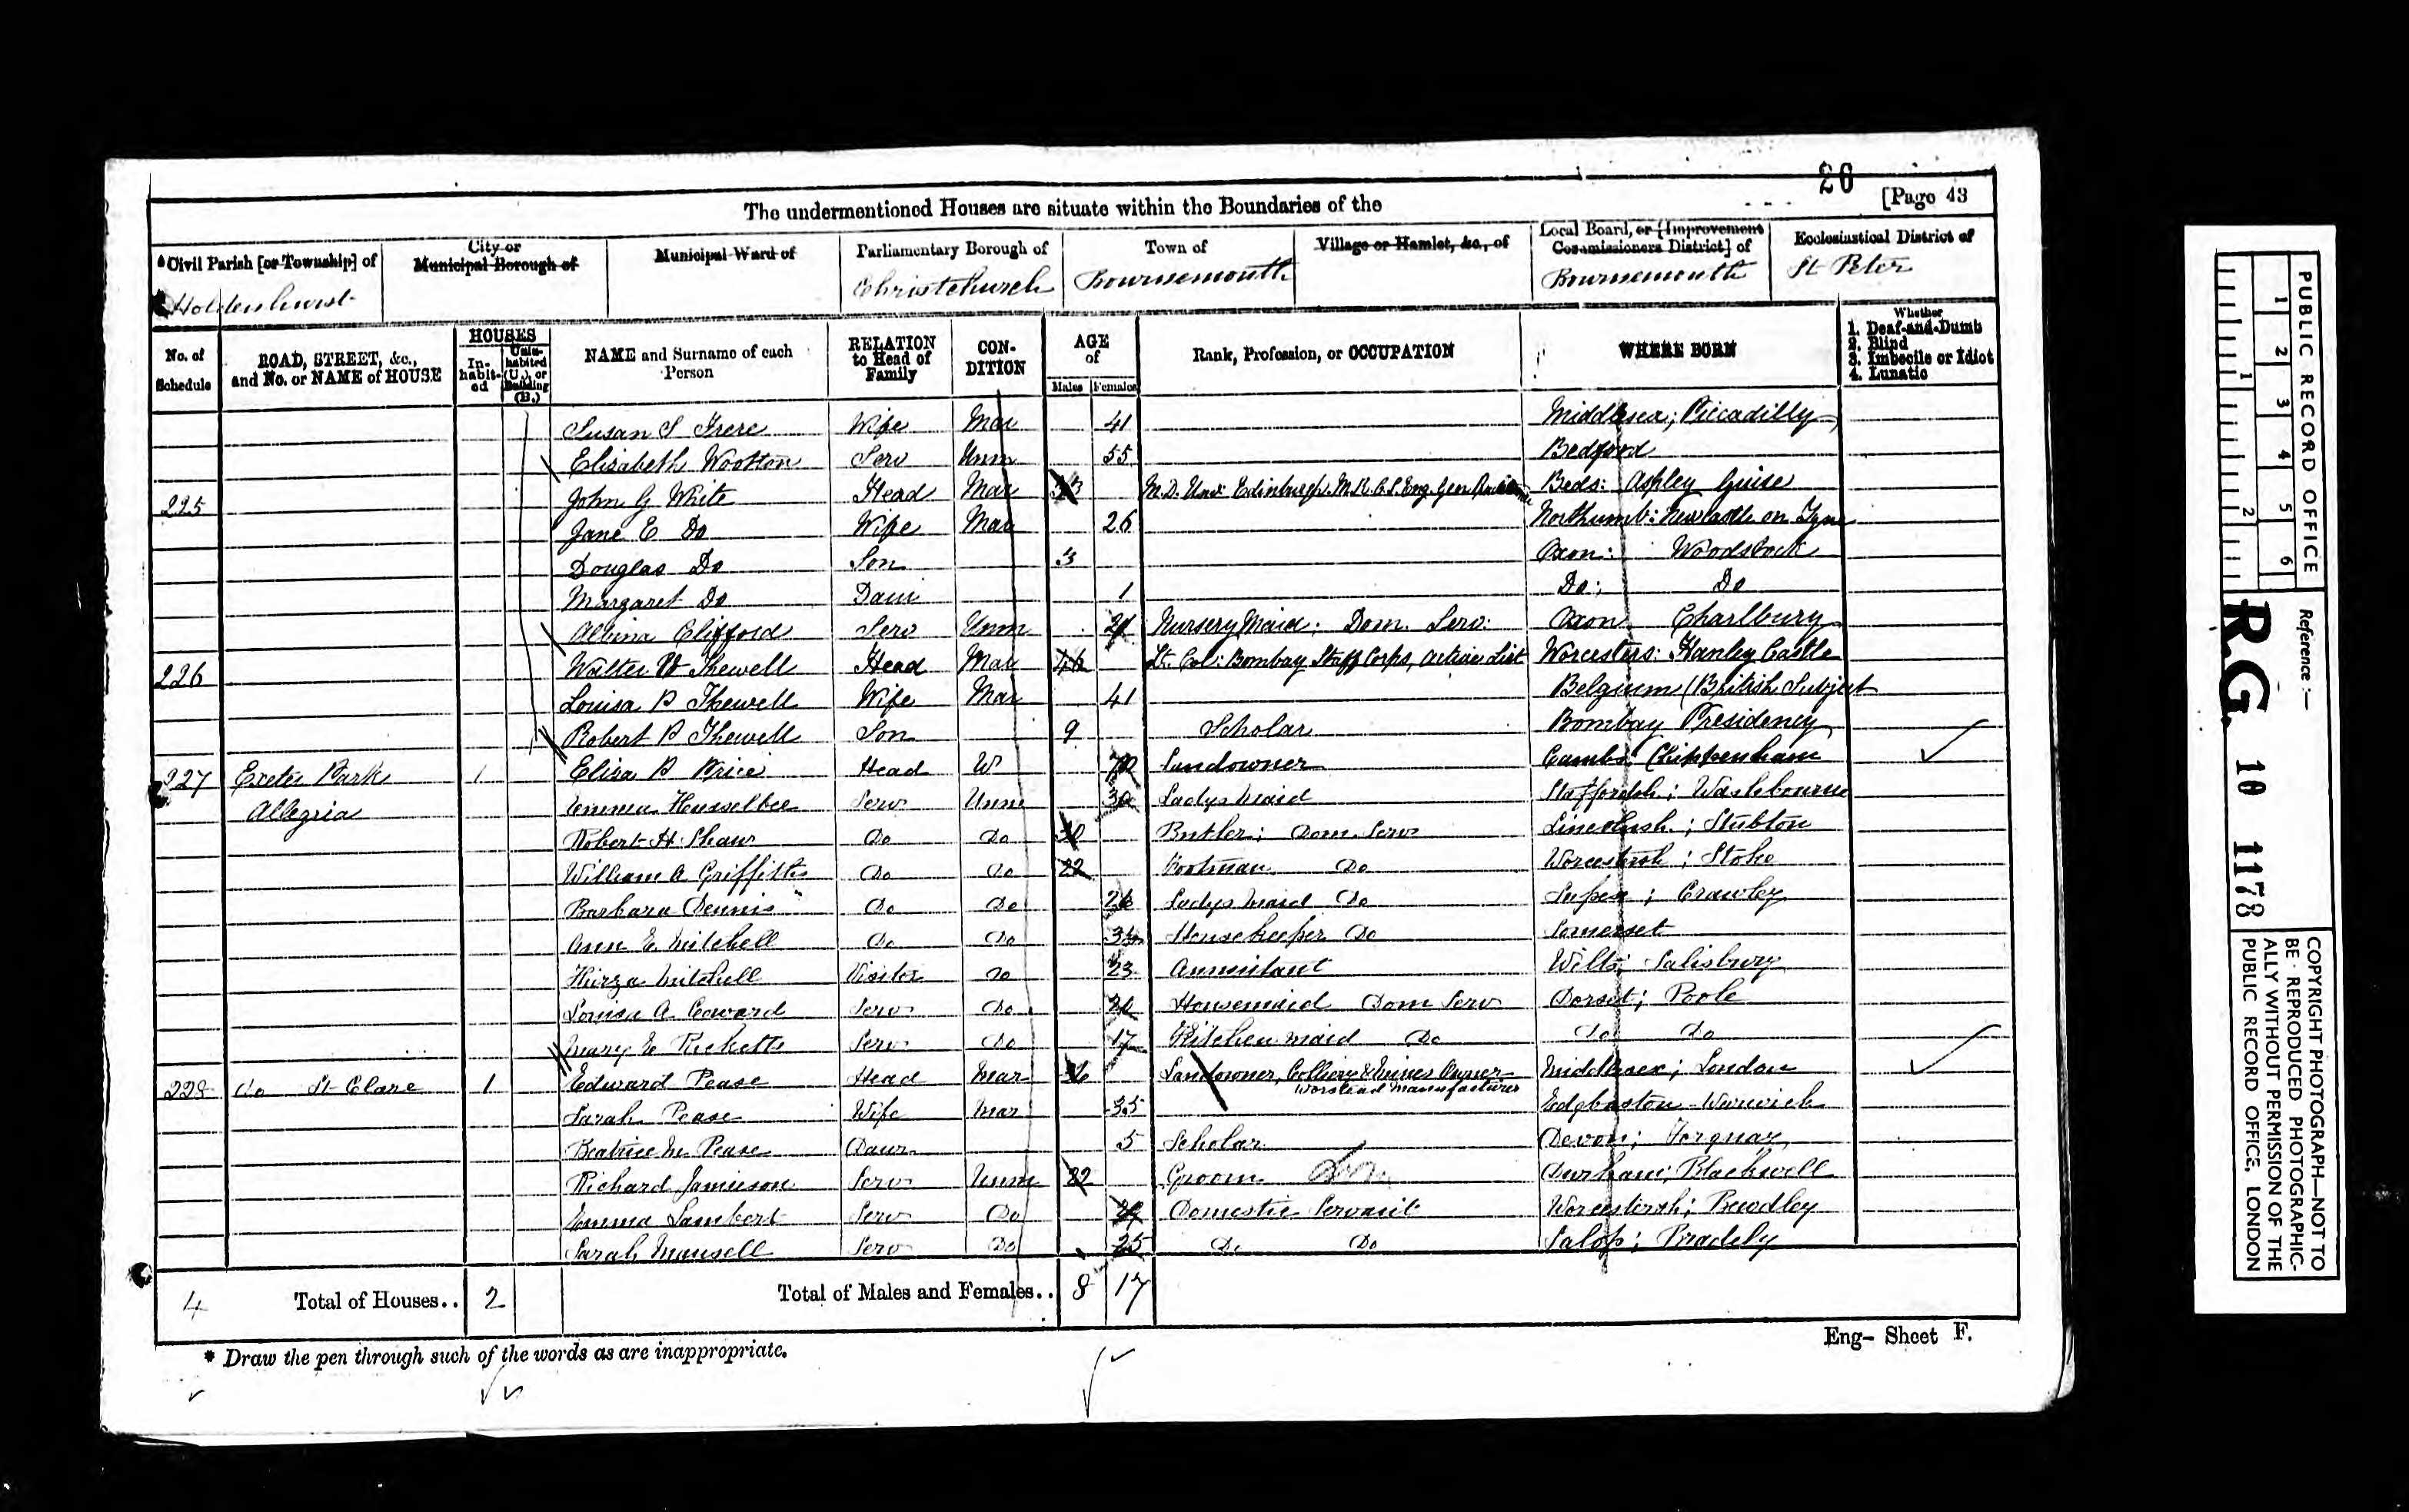 26
[Page 43
The undermentioned Houses are situate within the Boundaries of the
*Civil Parish [or Township] of
City or Municipal Borough of
Municipal Ward of
Parliamentary Borough of
Town of
Village or Hamlet, &c., of
Local Board, or [Improvement Commissioners District] of
Ecclesiastical District of
Holdenhurst
Christchurch
Bournemouth
Bournemouth
St Peter
No. of Schedule
ROAD, STREET, &c., and No. or NAME of HOUSE
HOUSES
In-habit-ed
Unin-habited (U.), or Building (B.)
NAME and Surname of each Person
RELATION to Head of Family
CON-DITION
AGE of
Males
Females
Rank, Profession, or OCCUPATION
WHERE BORN
Whether
1. Deaf-and-Dumb
2. Blind
3. Imbecile or Idiot
4. Lunatic
Susan S Frere Wife Mar 41 Middlesex; Piccadilly
Elizabeth Wootton Serv Unm 55 Bedford
225 John G White Head Mar M.D. Edinburgh M.R.C.S. Eng. Gen Beds: Aspley Guise
Jane E Do Wife Mar 26 Northumb: Newcastle on Tyne
Douglas Do Son 3 Oxon: Woodstock
Margaret Do Daur 1 Do; Do
Albina Clifford Serv Unm 21 Nursery Maid; Dom. Serv: Oxon Charlbury
226 Walter Thewell Head Mar 46 Lt. Col: Bombay Staff Corps, Active List Worcesters: Hanley Castle
Louisa B Thewell Wife Mar 41 Belgium (British Subject
Robert B Thewell Son 9 Scholar Bombay Presidency
227 Exeter Park 1 Eliza B Price Head W 70 Landowner Cambs; Chippenham
Allegria Emma Hasselbee Serv Unm 30 Ladys Maid Staffordsh; Washbourne
Robert H Shaw Do Do 30 Butler; Dom. Serv Lincolnsh.; Stubton
William A Griffiths Do Do 22 Footman Do Worcestersh; Stoke
Barbara Dennis Do Do 26 Ladys Maid Do Sussex; Crawley
Ann E Mitchell Do Do Housekeeper Do Somerset
Thirza Mitchell Visitor Do 23 Annuitant Wilts; Salisbury
Louisa A Coward Serv Do 20 Housemaid Dom Serv Dorset; Poole
Mary E Ricketts Serv Do 17 Kitchen maid Do Do Do
228 Do St Clare 1 Edward Pease Head Mar 46 Landowner, Colliery & Mines Owner Middlesex; London
Worstead Manufacturer
Sarah Pease Wife Mar 35 Edgbaston Warwick
Beatrice M Pease Daur 5 Scholar Devon; Torquay
Richard Jamieson Serv Unm 22 Groom Dom Durham; Blackwell
Emma Lambert Serv Do Domestic Servant Worcestersh; Bewdley
Sarah Mansell Serv Do 25 Do Do Salop; Bradely
4 Total of Houses.. 2 Total of Males and Females.. 8 17
Eng- Sheet F.
* Draw the pen through such of the words as are inappropriate.
PUBLIC RECORD OFFICE
1 2 3 4 5 6
1 2
Reference :—
R.G. 10 1178
COPYRIGHT PHOTOGRAPH—NOT TO
BE REPRODUCED PHOTOGRAPHIC-
ALLY WITHOUT PERMISSION OF THE
PUBLIC RECORD OFFICE, LONDON